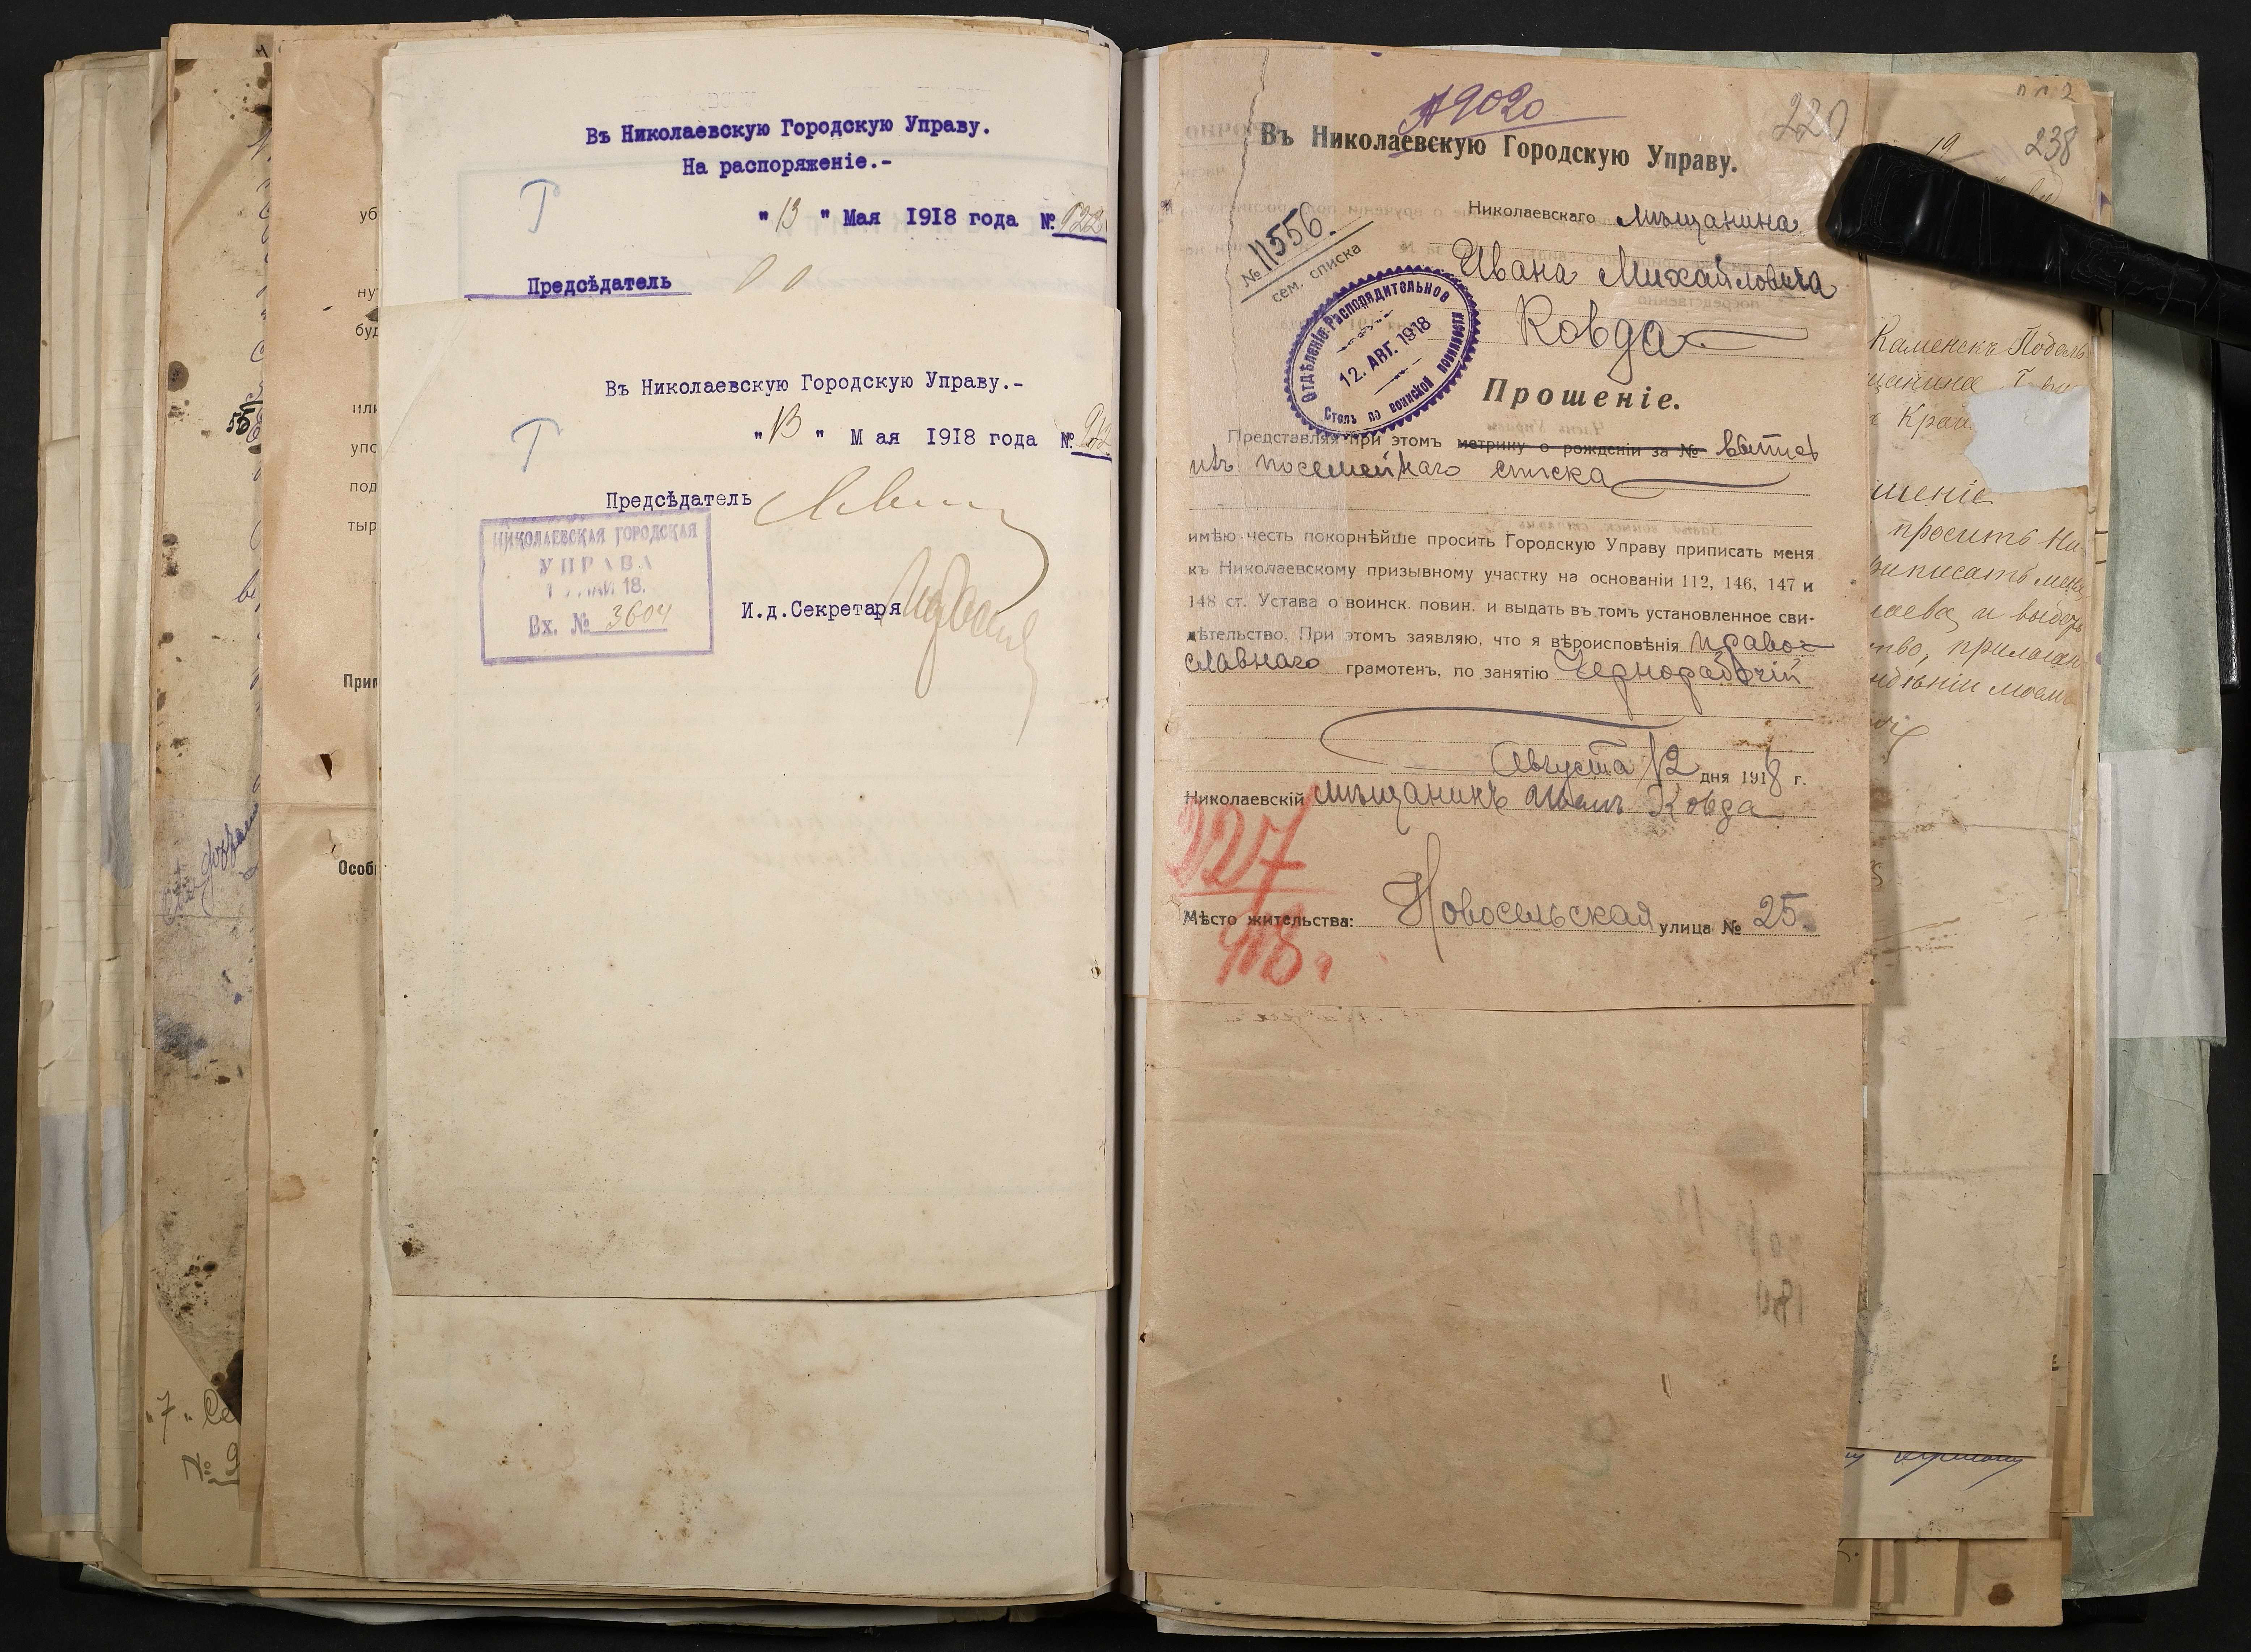 Въ Николаевскую Городскую Управу.
На распоряженіе.-
" 13 " Мая 1918 года №
Предсѣдатель
Въ Николаевскую Городскую Управу.-
" 13 " М ая 1918 года №
Предсѣдатель
НИКОЛАЕВСКАЯ ГОРОДСКАЯ
УПРАВА
МАЙ 18.
Вх. № 3604
И.д.Секретаря
уб
ну
буд
или
упо
под
тыр
При
Особ
"7"
220
Въ Николаевскую Городскую Управу.
Николаевскаго мѣщанина
№ 11556.
сем. списка
Ивана Михайловича
Ковда
Отдѣленіе Распорядительное
12. АВГ. 1918
Столъ по воинской повинности
Прошеніе.
Представляя при этомъ метрику о рожденіи за № выпись
изъ посемейнаго списка
имѣю честь покорнѣйше просить Городскую Управу приписать меня
къ Николаевскому призывному участку на основаніи 112, 146, 147 и
148 ст. Устава о воинск. повин. и выдать въ томъ установленное сви-
дѣтельство. При этомъ заявляю, что я вѣроисповѣнія право-
славнаго грамотенъ, по занятію Чернорабочій
Августа 12 дня 1918 г.
Николаевскій мѣщанинъ Иванъ Ковда
227
918.
Мѣсто жительства: Новосельская улица № 25.
19
238
Каменскъ Подоль
щанина
шеніе
просить Ни-
приписать меня
лаева и выдать
тво, прилаган